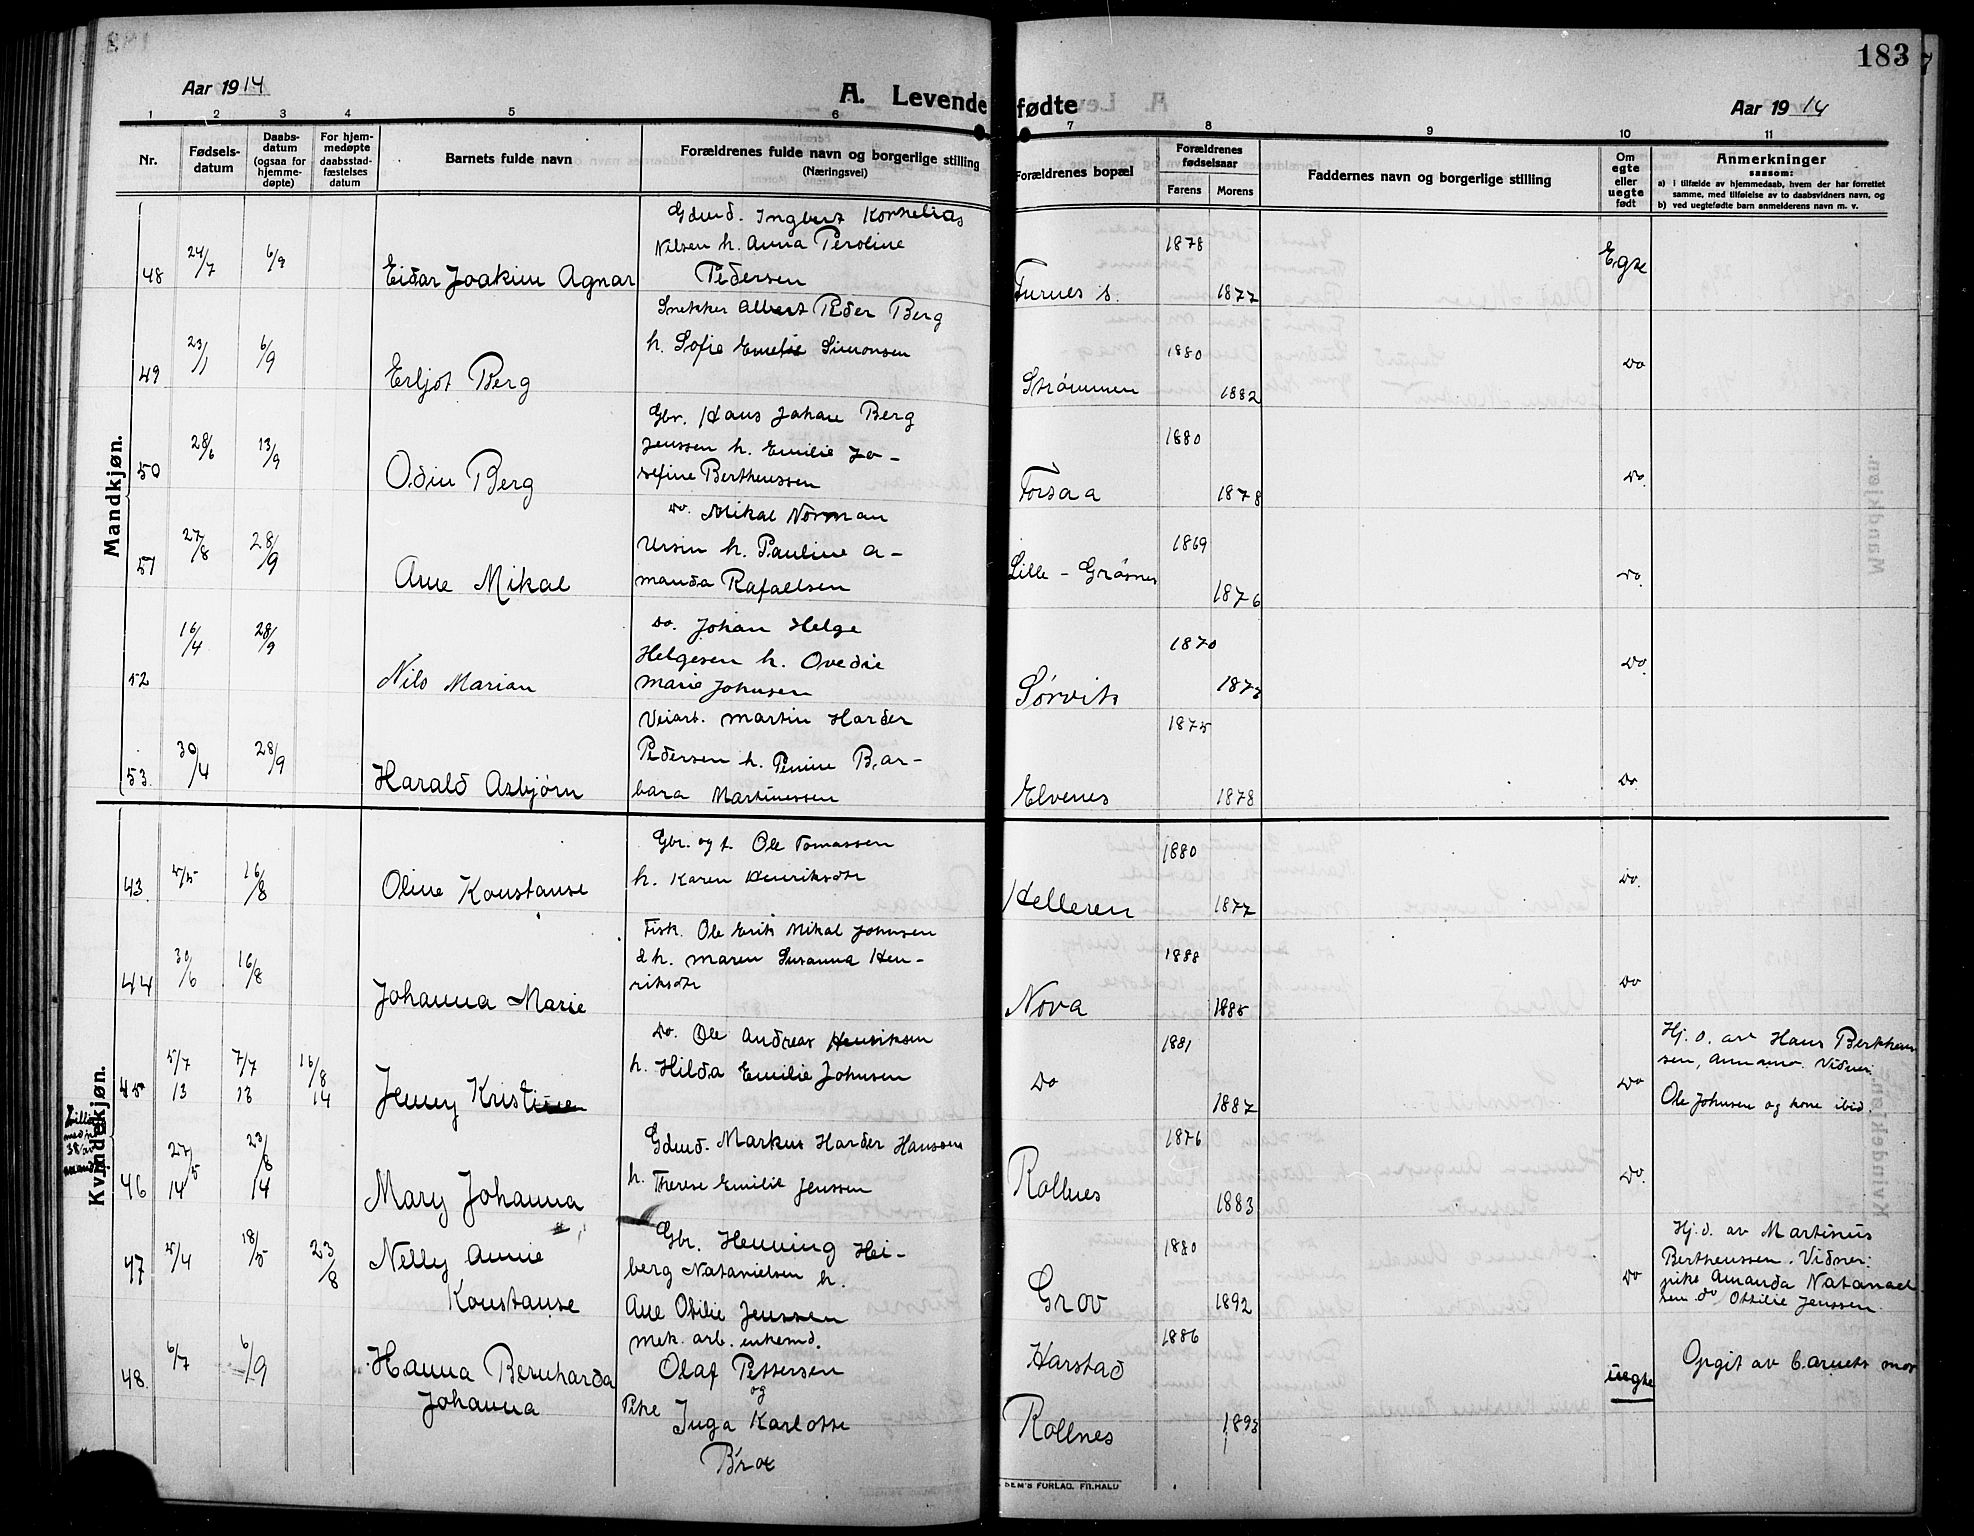 183
Aar 1914
A. Levende fødte
Aar 1914
1 2 3 4 5 6 7 8 9 10 11
Nr.
Fødsels-
datum
Daabs-
datum
(ogsaa for
hjemme-
døpte)
For hjem-
medøpte
daabsstad-
fæstelses
datum
Barnets fulde navn
Forældrenes fulde navn og borgerlige stilling
(Næringsvei)
Forældrenes bopæl
Forældrenes
fødselsaar
Farens Morens
Faddernes navn og borgerlige stilling
Om
egte
eller
uegte
født
Anmerkninger
saasom:
a) i tilfælde av hjemmedaab, hvem der har forrettet
samme, med tilføielse av to daabsvidners navn, og
b) ved uegtefødte barn anmelderens navn m. v.
Mandkjøn.
Gdmd. Ingbert Kornelias
Nilsen h. Anna Peroline
48 24/7 6/9 Eidar Joakim Agnar Pedersen Furnes s. 1878 1877 Egte
Snekker Albert Peder Berg
h. Sofie Emelie Simonsen
49 23/1 6/9 Erljot Berg Strømmen 1880 1882 Do
Gbr. Hans Johan Berg
Jenssen h. Emilie Jo-
50 28/6 13/9 Odin Berg sefine Bertheussen Forsaa 1880 1878 Do.
Do. Mikal Norman
Ursin h. Pauline A-
51 27/8 28/9 Arne Mikal manda Rafaelsen Lille-Grøsnes 1869 1876 Do.
Do. Johan Helge
Helgesen h. Ovedie
52 16/4 28/9 Nils Marian Marie Johnsen Sørvik 1870 1873 Do.
Veiarb. Martin Harder
Pedersen h. Penine Bar-
53. 30/4 28/9 Harald Asbjørn bara Martinussen Elvenes 1875 1878 Do.
Kvindekjøn.
Gbr. og f. Ole Tomassen
43. 5/5 16/8 Oline Konstanse h. Karen Henriksdtr Helleren 1880 1877 Do.
Fisk. Ole Erik Mikal Johnsen
& h. Maren Susanna Hen-
44 30/6 16/8 Johanna Marie riksdtr Nova 1888 1885 Do
Do. Ole Andreas Henriksen
45 5/7 13 7/7 13 16/8 14 Jenny Kristine h. Hilda Emilie Johnsen Do 1881 1887 Do
Hj. d. av Hans Bertheus-
sen, Vidner:
Ole Johnsen og kone ibid.
Gdmd. Markus Harder Hansen
46 27/5 14 23/8 14 Mary Johanna h. Therese Emilie Jenssen Rollnes 1876 1883 Do.
Gbr. Henning Hei-
47 5/4 18/5 23/8 Nelly Annie berg Natanielsen h.
Konstanse Ane Otilie Jenssen Grov 1880 1892 Do
Hj. d. av Martinus
Bertheussen. Vidner:
pike Amanda Natanael
sen do Ottilie Jenssen.
mek. arb. enkemd.
48. 6/7 6/9 Hanna Bernharda Olaf Pettersen Harstad 1886 uegte Opgit av barnets mor
Johanna og
Pike Inga Karlotte Rollnes 1893
Brox
SEM'S FORLAG. FR.HALD